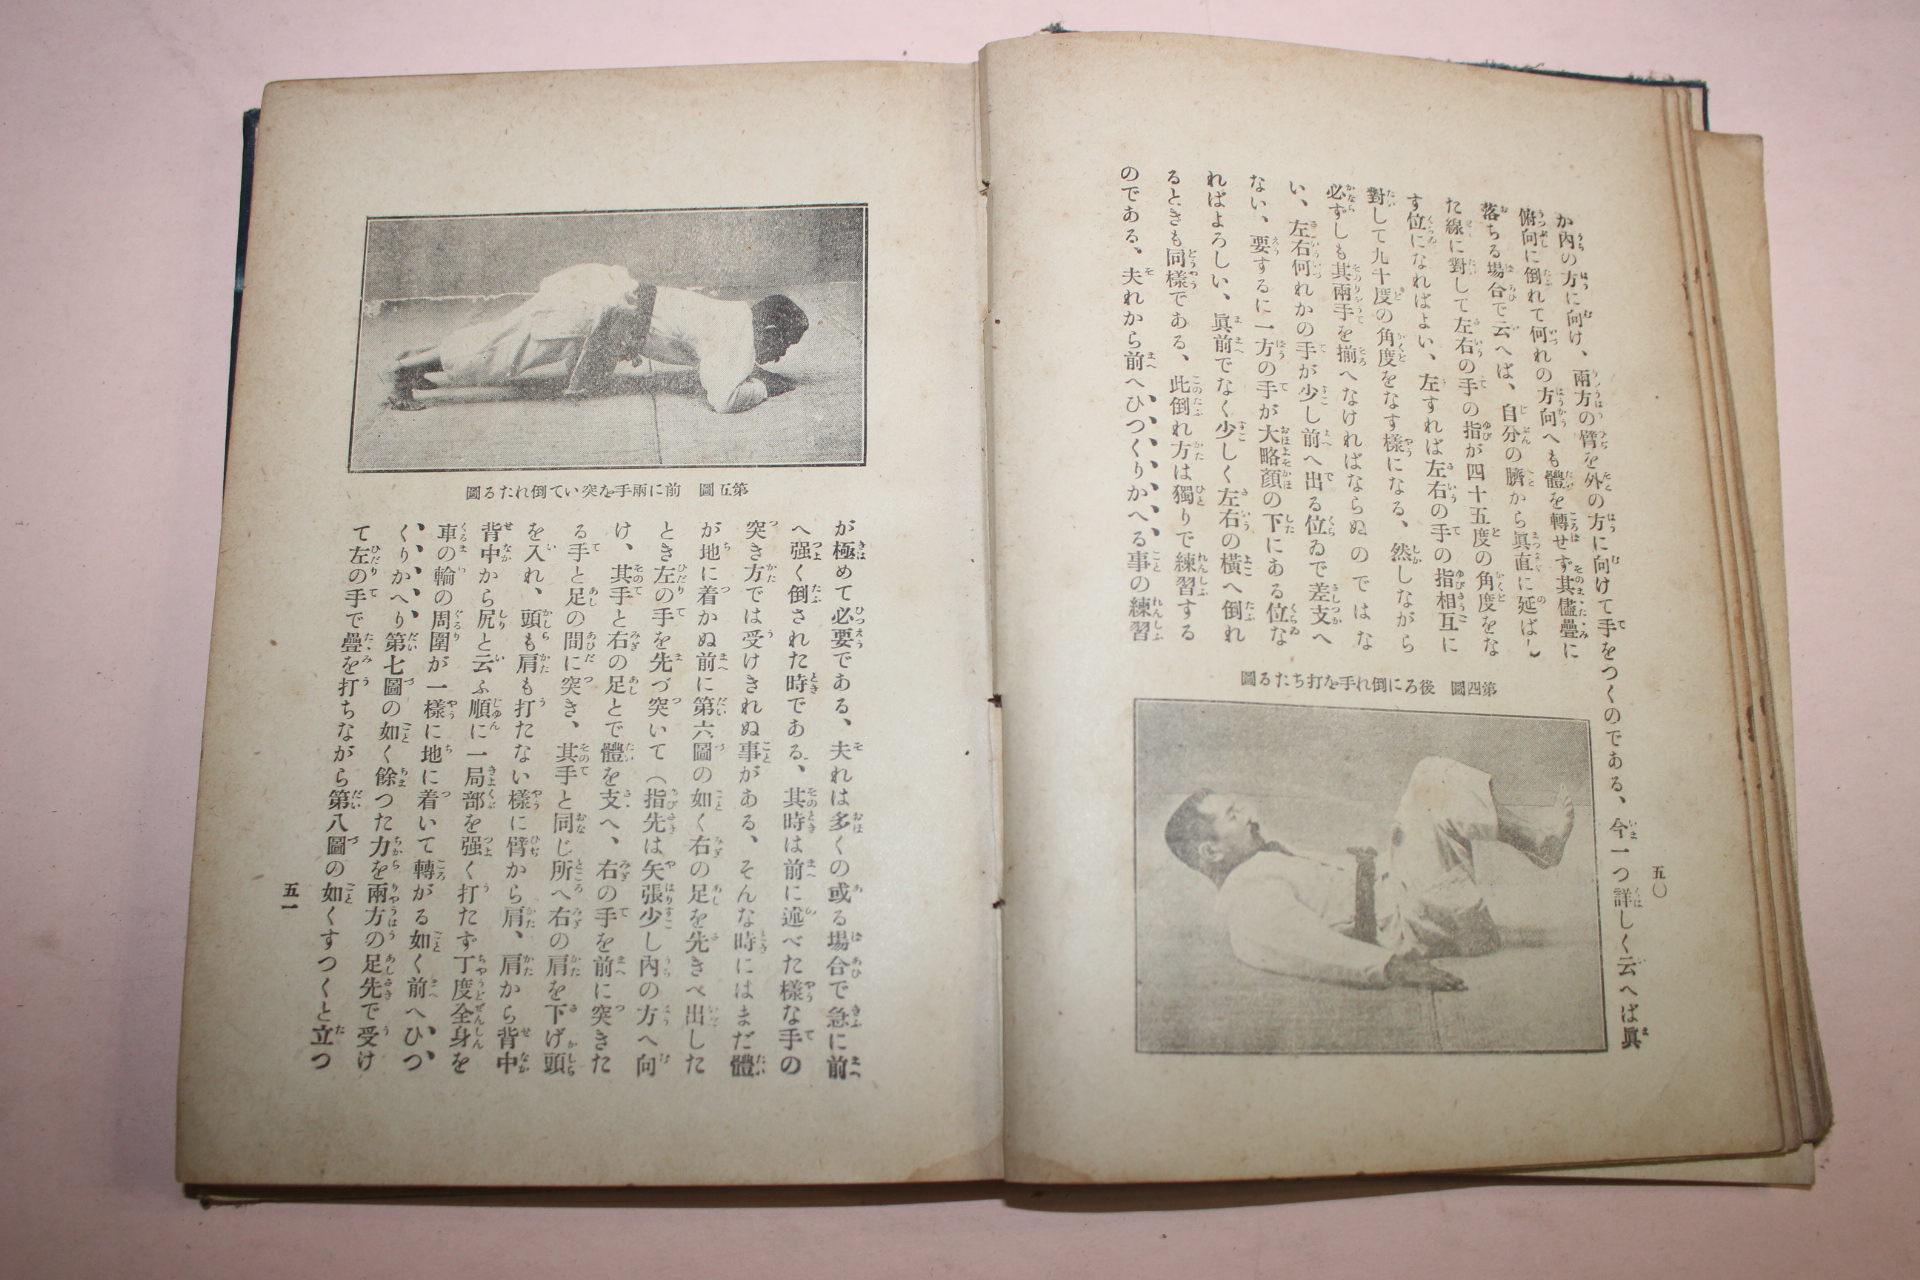 五〇
か內の方に向け、兩方の臂を外の方に向けて手をつくのである、今一つ詳しく云へば眞
俯向に倒れて何れの方向へも體を轉せず其儘疊に
落ちる場合で云へば、自分の臍から眞直に延ばし
た線に對して左右の手の指が四十五度の角度をな
す位になればよい、左すれば左右の手の指相互に
對して九十度の角度をなす樣になる、然しながら
必ずしも其兩手を揃へなければならぬのではな
い、左右何れかの手が少し前へ出る位ゐで差支へ
ない、要するに一方の手が大略顔の下にある位な
ればよろしい、眞前でなく少しく左右の橫へ倒れ
るときも同樣である、此倒れ方は獨りで練習する
のである、夫れから前へひつくりかへる事の練習
第四圖　後ろに倒れ手を打ちたる圖
第五圖　前に兩手を突いて倒れたる圖
が極めて必要である、夫れは多くの或る場合で急に前
へ强く倒された時である、其時は前に述べた樣な手の
突き方では受けきれぬ事がある、そんな時にはまだ體
が地に着かぬ前に第六圖の如く右の足を先きへ出した
とき左の手を先づ突いて（指先は矢張少し內の方へ向
け、其手と右の足とで體を支へ、右の手を前に突きた
る手と足の間に突き、其手と同じ所へ右の肩を下げ頭
を入れ、頭も肩も打たない樣に臂から肩、肩から背中
背中から尻と云ふ順に一局部を强く打たず丁度全身を
車の輪の周圍が一樣に地に着いて轉がる如く前へひつ
くりかへり第七圖の如く餘つた力を兩方の足先で受け
て左の手で疊を打ちながら第八圖の如くすつくと立つ
五一